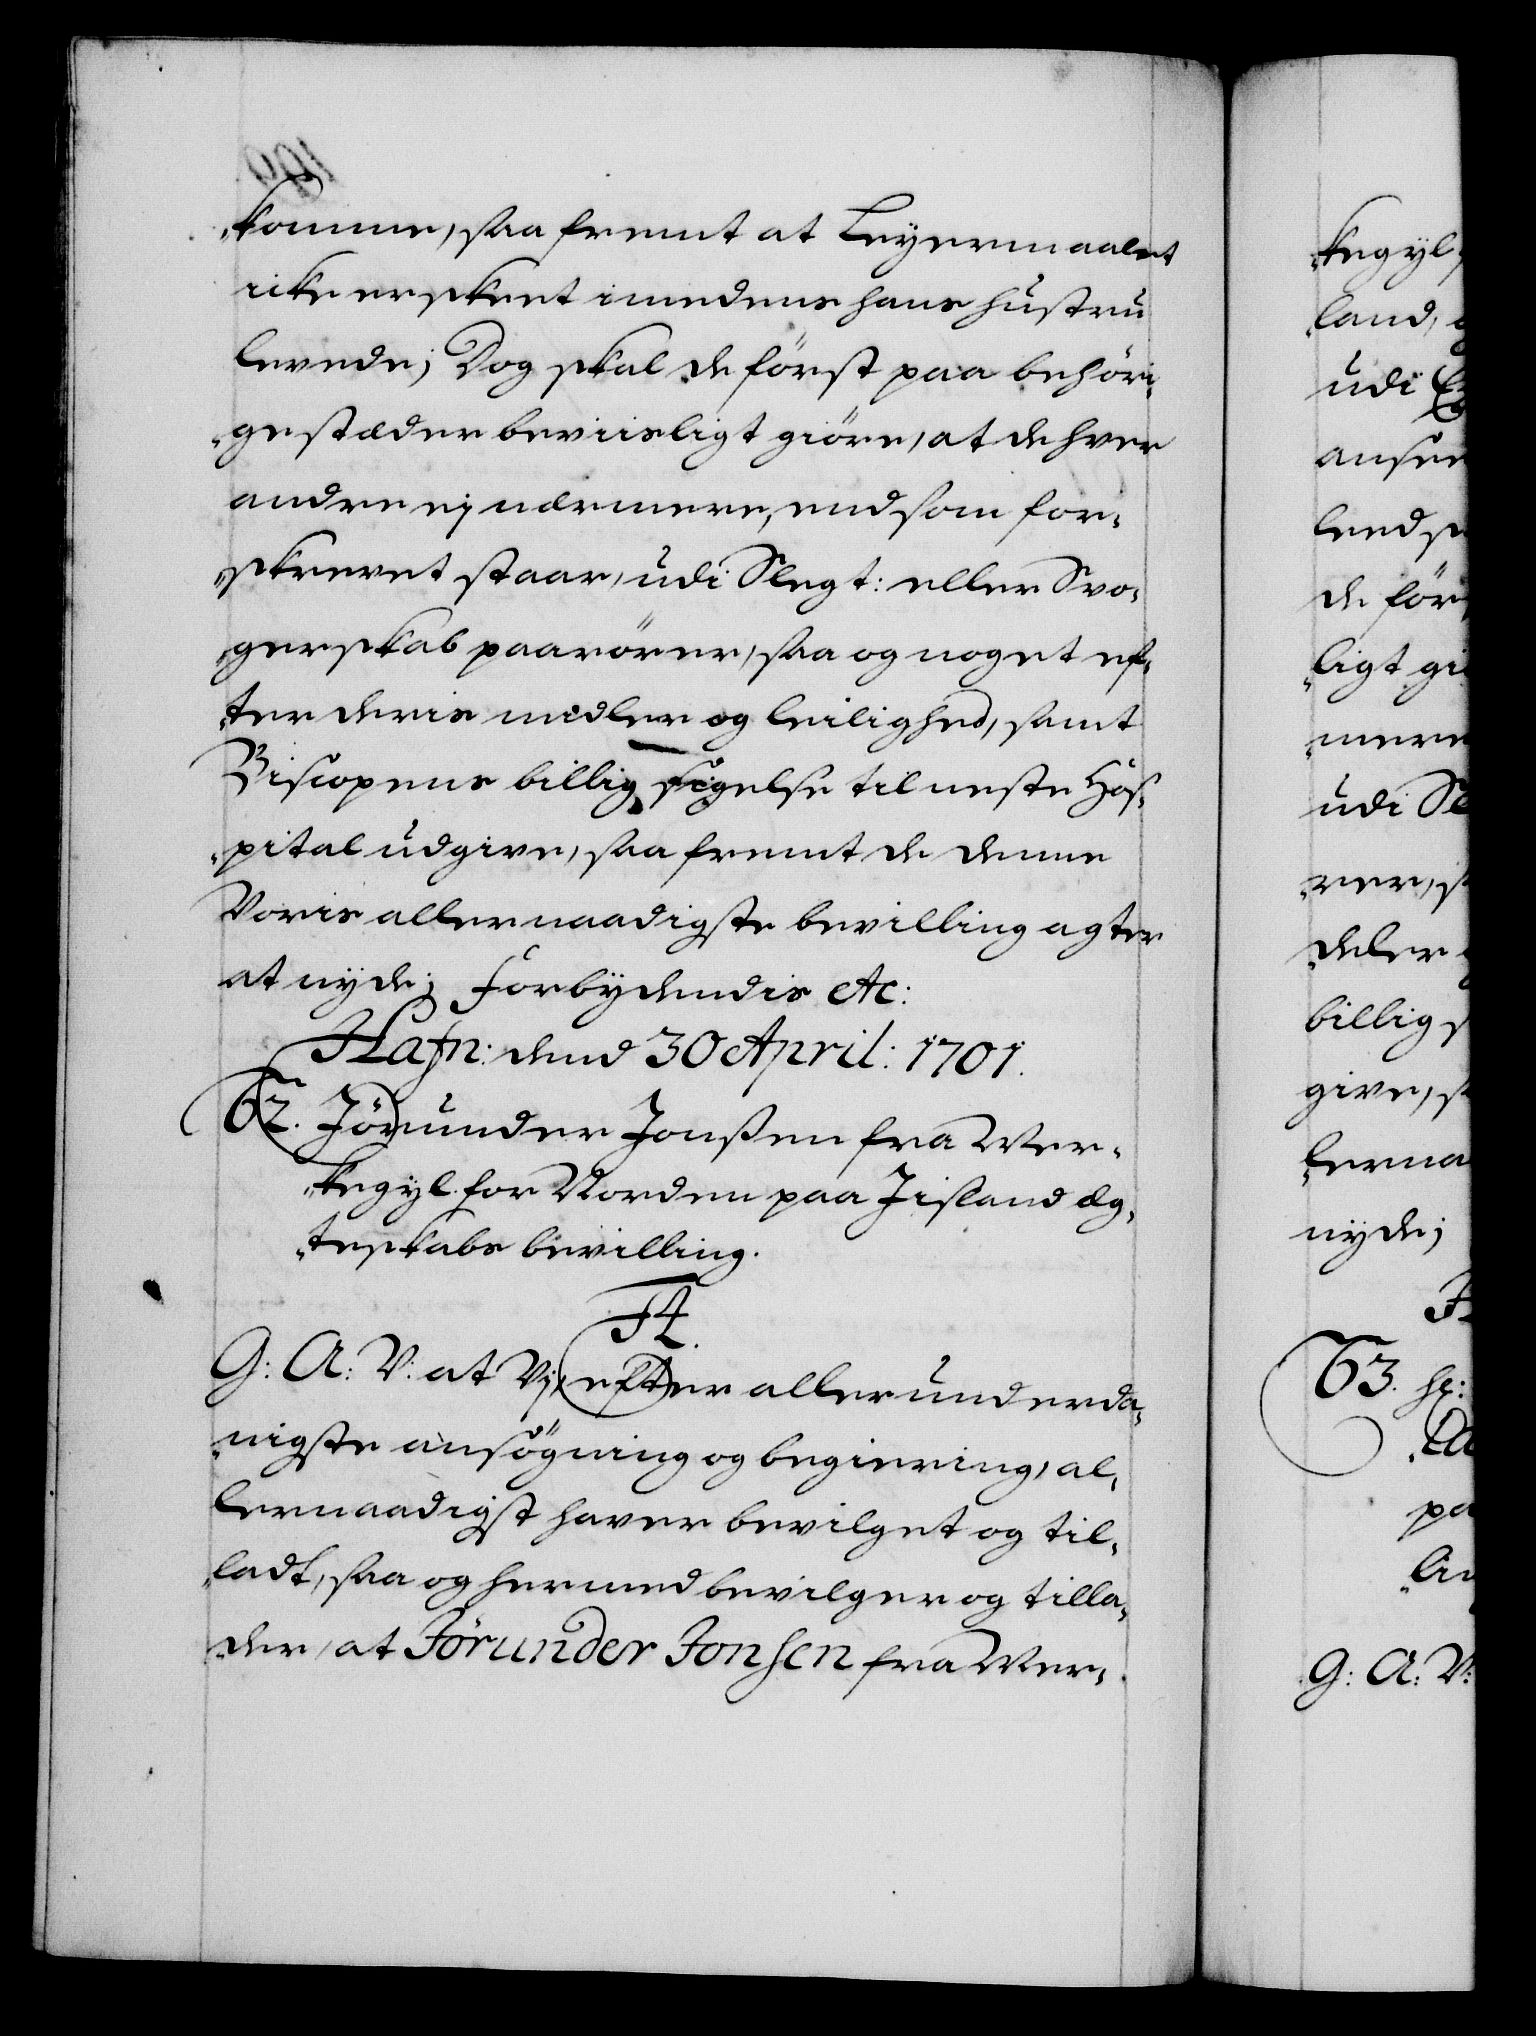 „komme, saa fremt at Leyermaalet
icke er skeet imedens hans hustru
levede; Dog skal de först paa behöri„
„ge stæder beviisligt giöre, at de hver
andre ej nærmere, end som for„
„skrevet staar, udi Slegt: eller Svo„
„gerskab paarörer, saa og noget ef„
„ter deris midler og leilighed, samt
Biscopens billig sigelse til neste Hos„
„pital udgive, saa fremt de denne
Voris allernaadigste bevilling agter
at nyde; Forbydendis etc:
Hafn: dend 30 April: 1701.
62. Jörunder Jonßen fra Mer„
„kegyl for Norden paa Jisland æg„
„teskabs bevilling.
F4.
G: A: V: at Vj, efter allerunderda„
„nigste ansögning og begiering, al„
„lernaadigst haver bevilget og til„
„ladt, saa og hermed bevilger og tilla„
„der, at Jörunder Jonsen fra Mer„
„kegyl
land,
udi
ansee
leeds
de för
„ligt gi
„mere
udi Sl
„rer, s
„deler
billig s
give, s
„lerna
nyde;
63. hr:
pa
G: A: V: